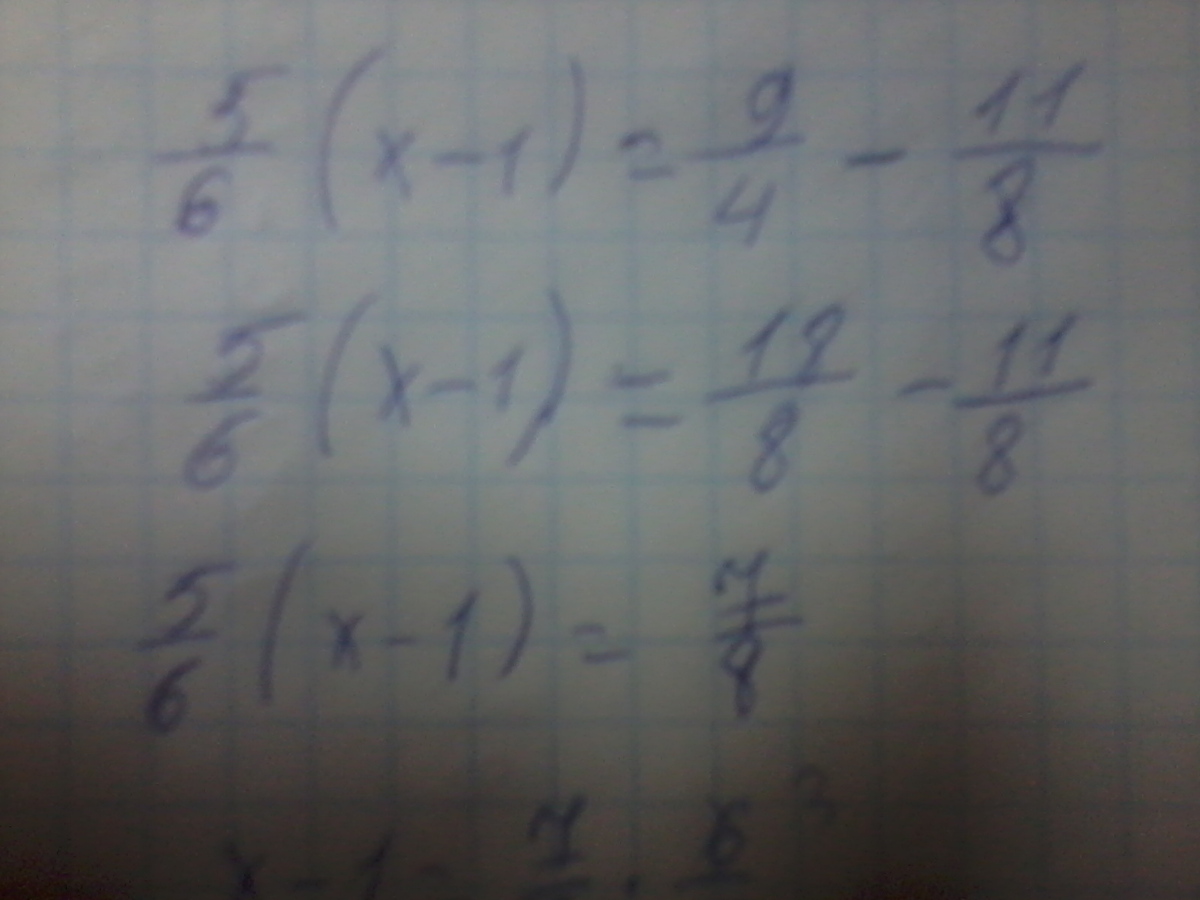 5/6 (x-1) = 9/4 - 11/8
5/6 (x-1) = 18/8 - 11/8
5/6 (x-1) = 7/8
x-1= 7 · 6 3